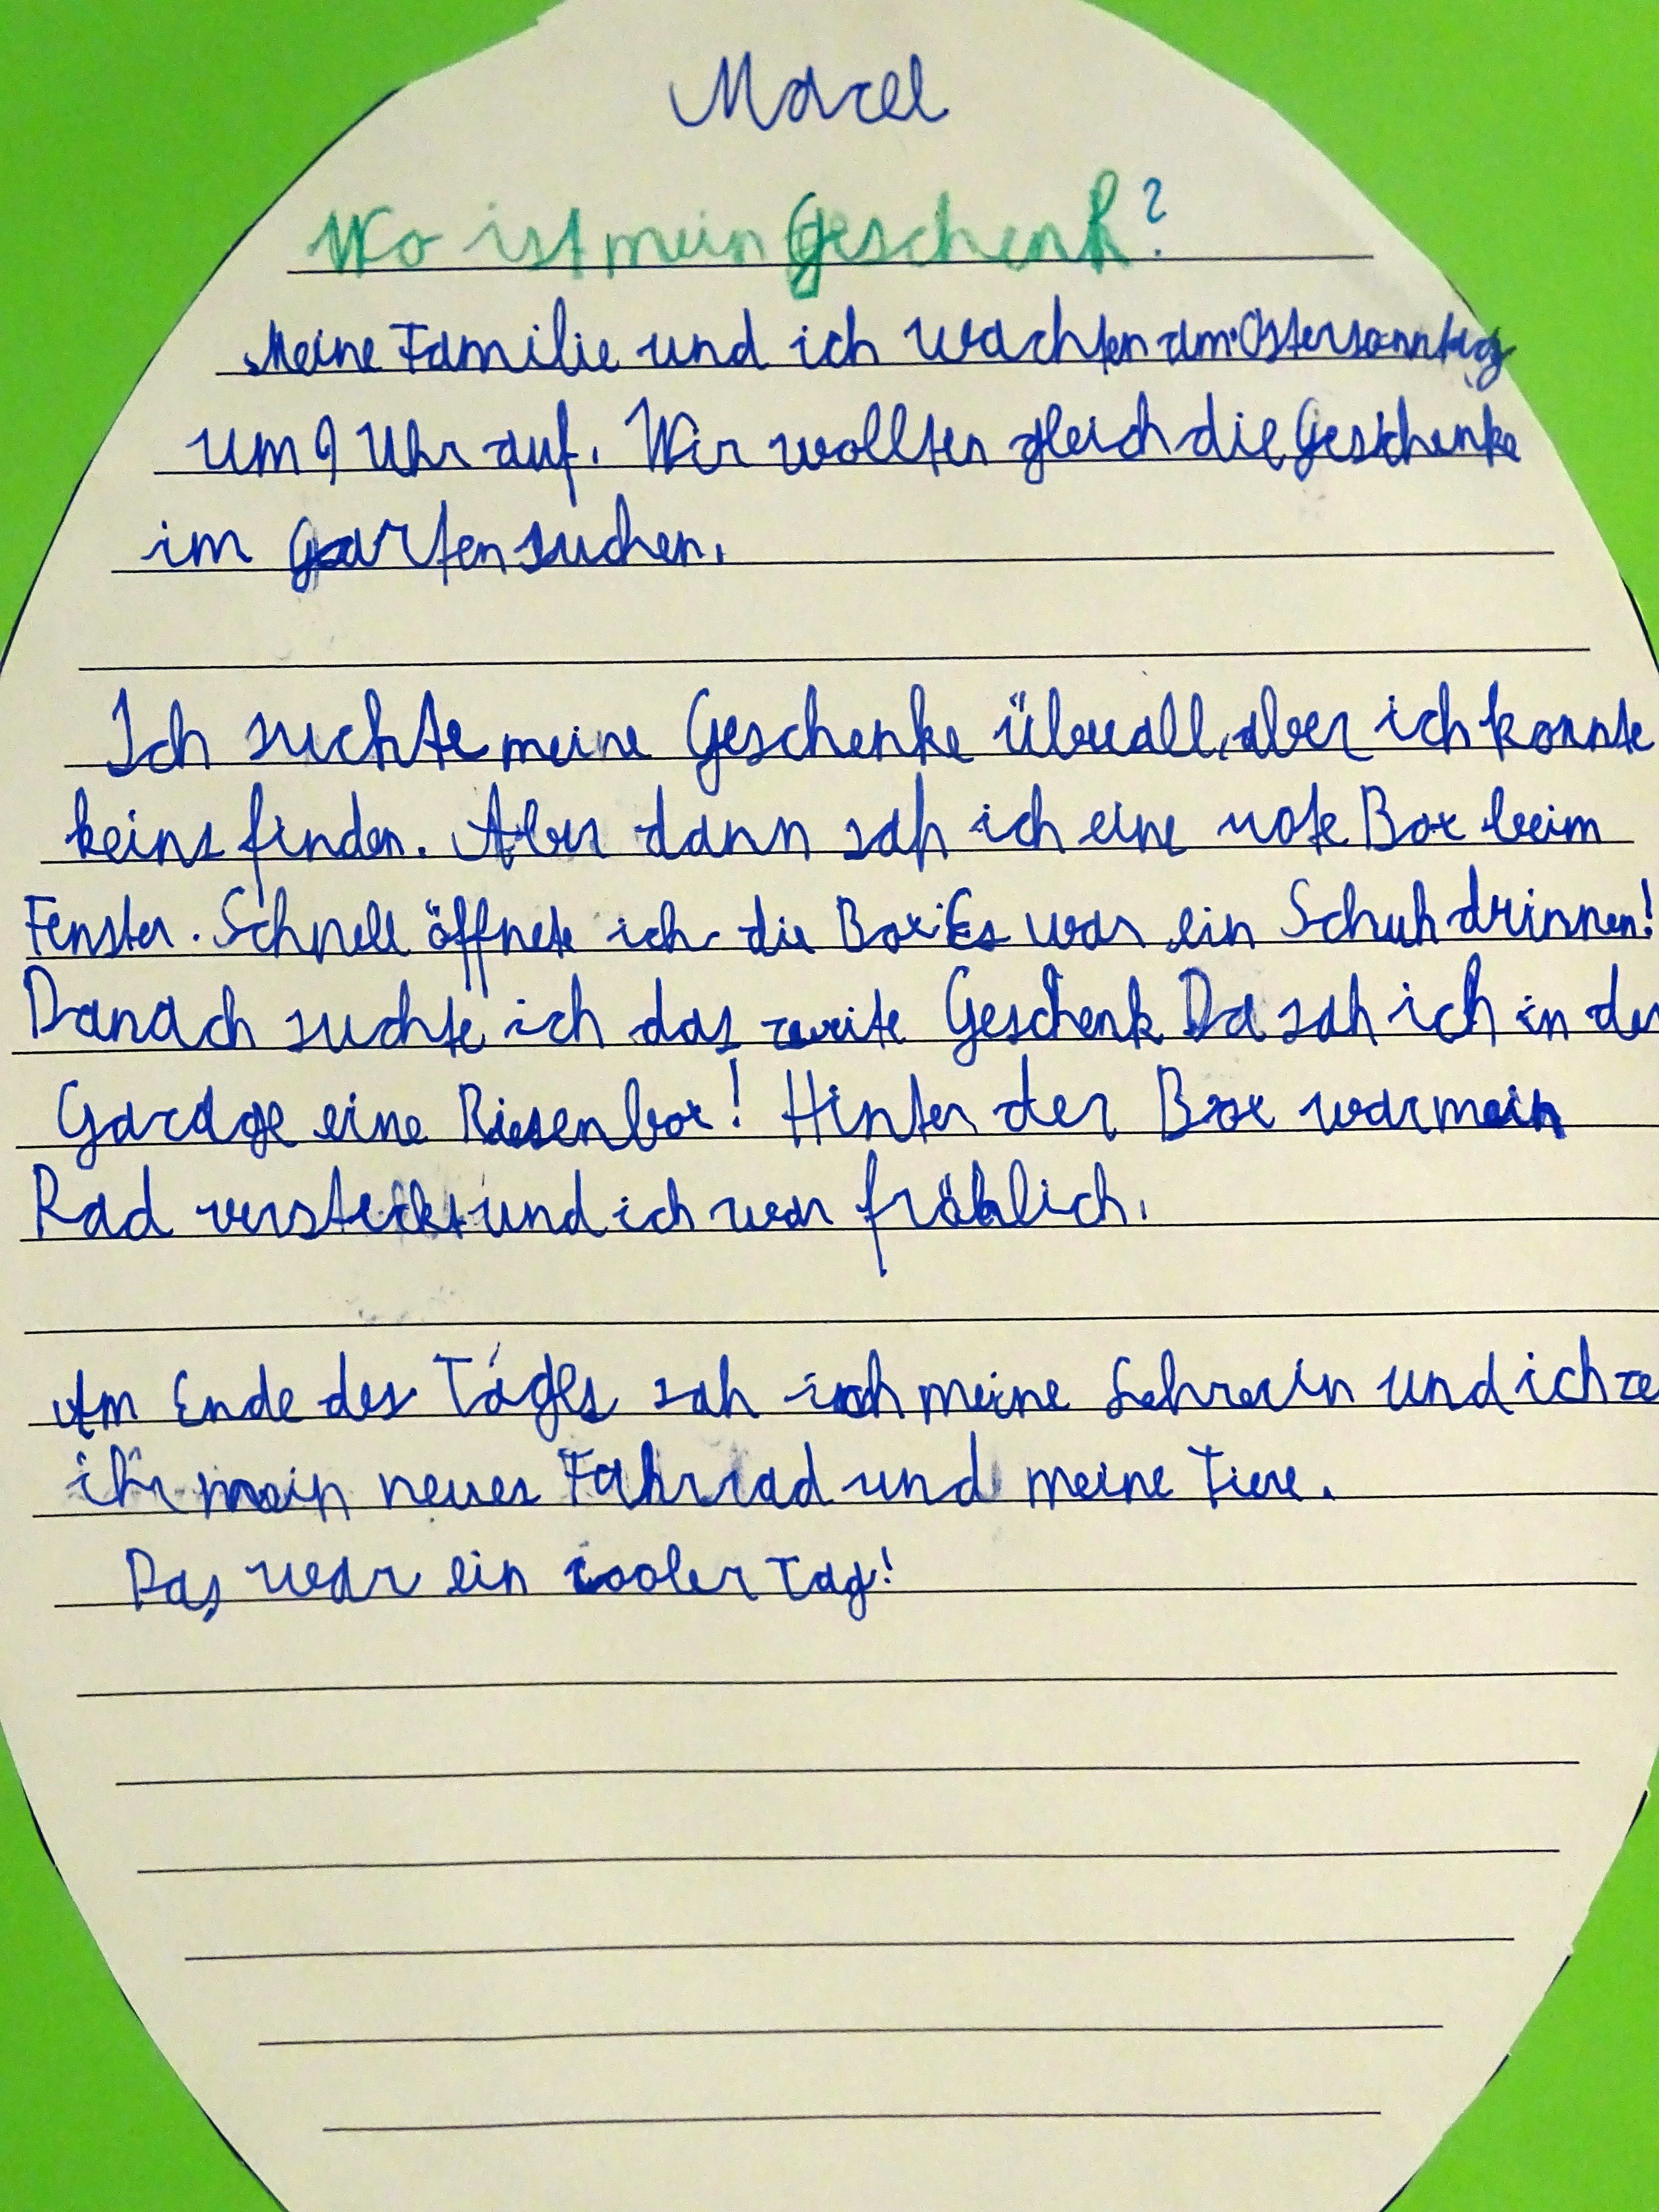 Marcel
Wo ist mein Geschenk?
Meine Familie und ich wachten am Ostersonntag
um 9 Uhr auf. Wir wollten gleich die Geschenke
im Garten suchen.
Ich suchte meine Geschenke überall, aber ich konnte
keins finden. Aber dann sah ich eine rote Box beim
Fenster. Schnell öffnete ich die Box. Es war ein Schuh drinnen!
Danach suchte ich das zweite Geschenk Da sah ich in der
Garage eine Riesenbox! Hinter der Box war mein
Rad versteckt und ich war fröhlich.
Am Ende des Tages sah ich meine Lehrerin und ich
ihr mein neues Fahrrad und meine Tiere.
Das war ein cooler Tag!